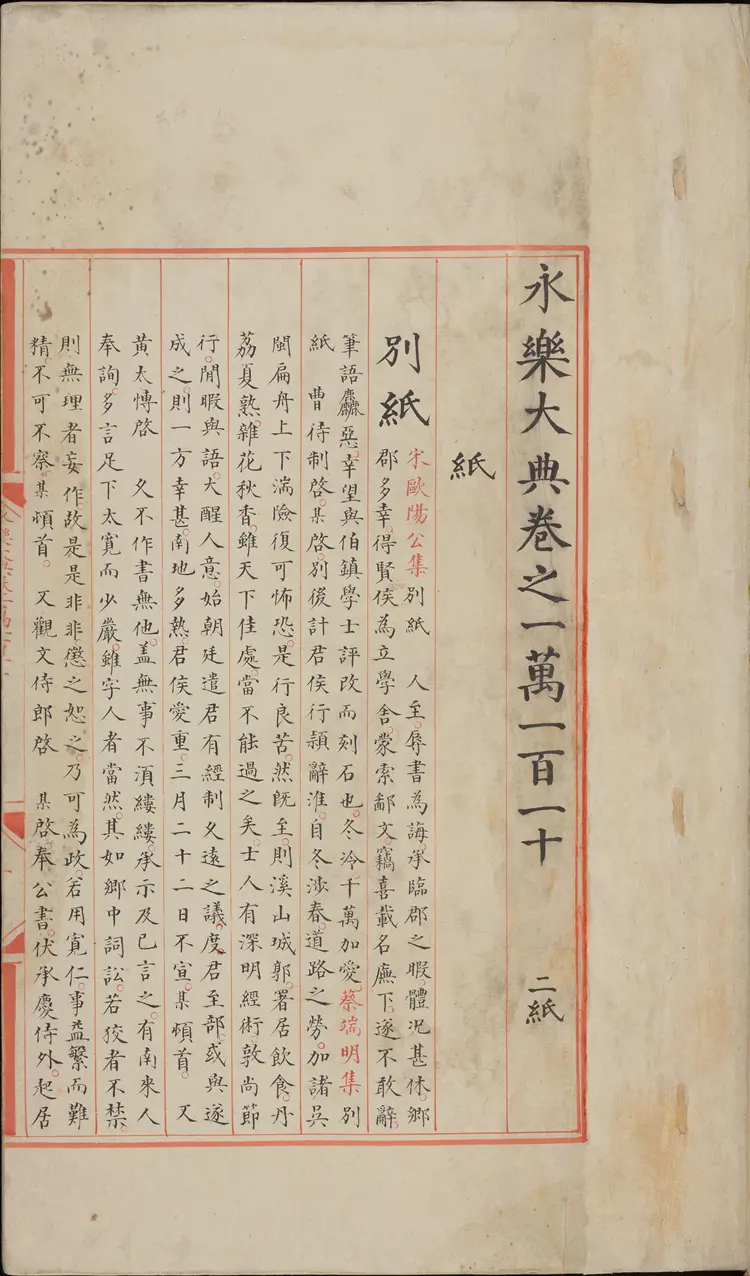 永樂大典卷之一萬一百一十 二紙
紙
別紙
宋歐陽公集別紙 人至。辱書為誨。承臨郡之暇。體況甚休。鄉
郡多幸。得賢侯為立學舍。蒙索鄙文。竊喜載名廡下。遂不敢辭。
筆語麤惡。幸望與伯鎮學士評改而刻石也。冬冷千萬加愛。蔡端明集別
紙 曹待制啓。某啓。別後計君侯行潁辭淮。自冬涉春。道路之勞。加諸吳
閩扁舟上下湍險。復可怖恐。是行良苦。然既至。則溪山城郭。署居飲食。丹
荔夏熟。雜花秋香。雖天下佳處。當不能過之矣。士人有深明經術。敦尚節
行。閒暇與語。大醒人意。始朝廷遣君有經制久遠之議。度君至部。或與遂
成之。則一方幸甚。南地多熱。君侯愛重。三月二十二日不宣。某頓首。 又
黃太愽啓 久不作書無他。蓋無事不湏縷縷。承示及已言之。有南來人
奉詢。多言足下太寬而少嚴。雖字人者當然。其如鄉中詞訟。若狡者不禁。
則無理者妄作。故是是非非懲之恕之。乃可為政。若用寛仁。事益繁而難
精。不可不察。某頓首。 又觀文侍郎啓 某啓奉公書。伏承慶侍外。起居